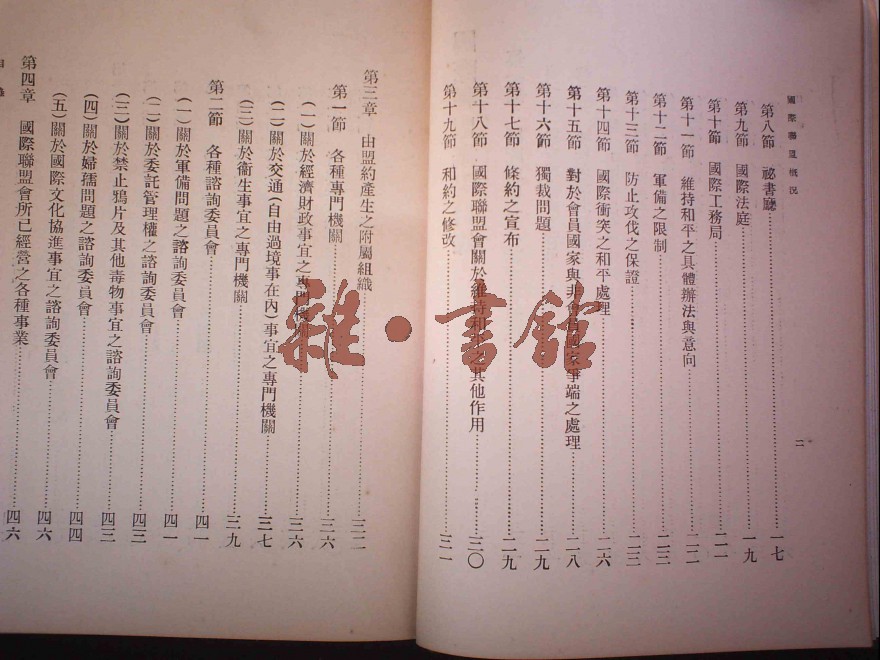 國際聯盟概況
第八節 祕書廳 一七
第九節 國際法庭 一九
第十節 國際工務局 二一
第十一節 維持和平之具體辦法與意向 二二
第十二節 軍備之限制 二三
第十三節 防止攻伐之保證 二三
第十四節 國際衝突之和平處理 二六
第十五節 對於會員國家與非會員國家爭端之處理 二八
第十六節 獨裁問題 二九
第十七節 條約之宣布 二九
第十八節 國際聯盟會關於維持和平之其他作用 三〇
第十九節 和約之修改 三一
二
第三章 由盟約產生之附屬組織 三二
第一節 各種專門機關 三六
(一)關於經濟財政事宜之專門機關 三六
(二)關於交通(自由過境事在內)事宜之專門機關 三七
(三)關於衞生事宜之專門機關 三九
第二節 各種諮詢委員會 四一
(一)關於軍備問題之諮詢委員會 四一
(二)關於委託管理權之諮詢委員會 四三
(三)關於禁止鴉片及其他毒物事宜之諮詢委員會 四三
(四)關於婦孺問題之諮詢委員會 四四
(五)關於國際文化協進事宜之諮詢委員會 四六
第四章 國際聯盟會所已經營之各種事業 四六
雜·書館